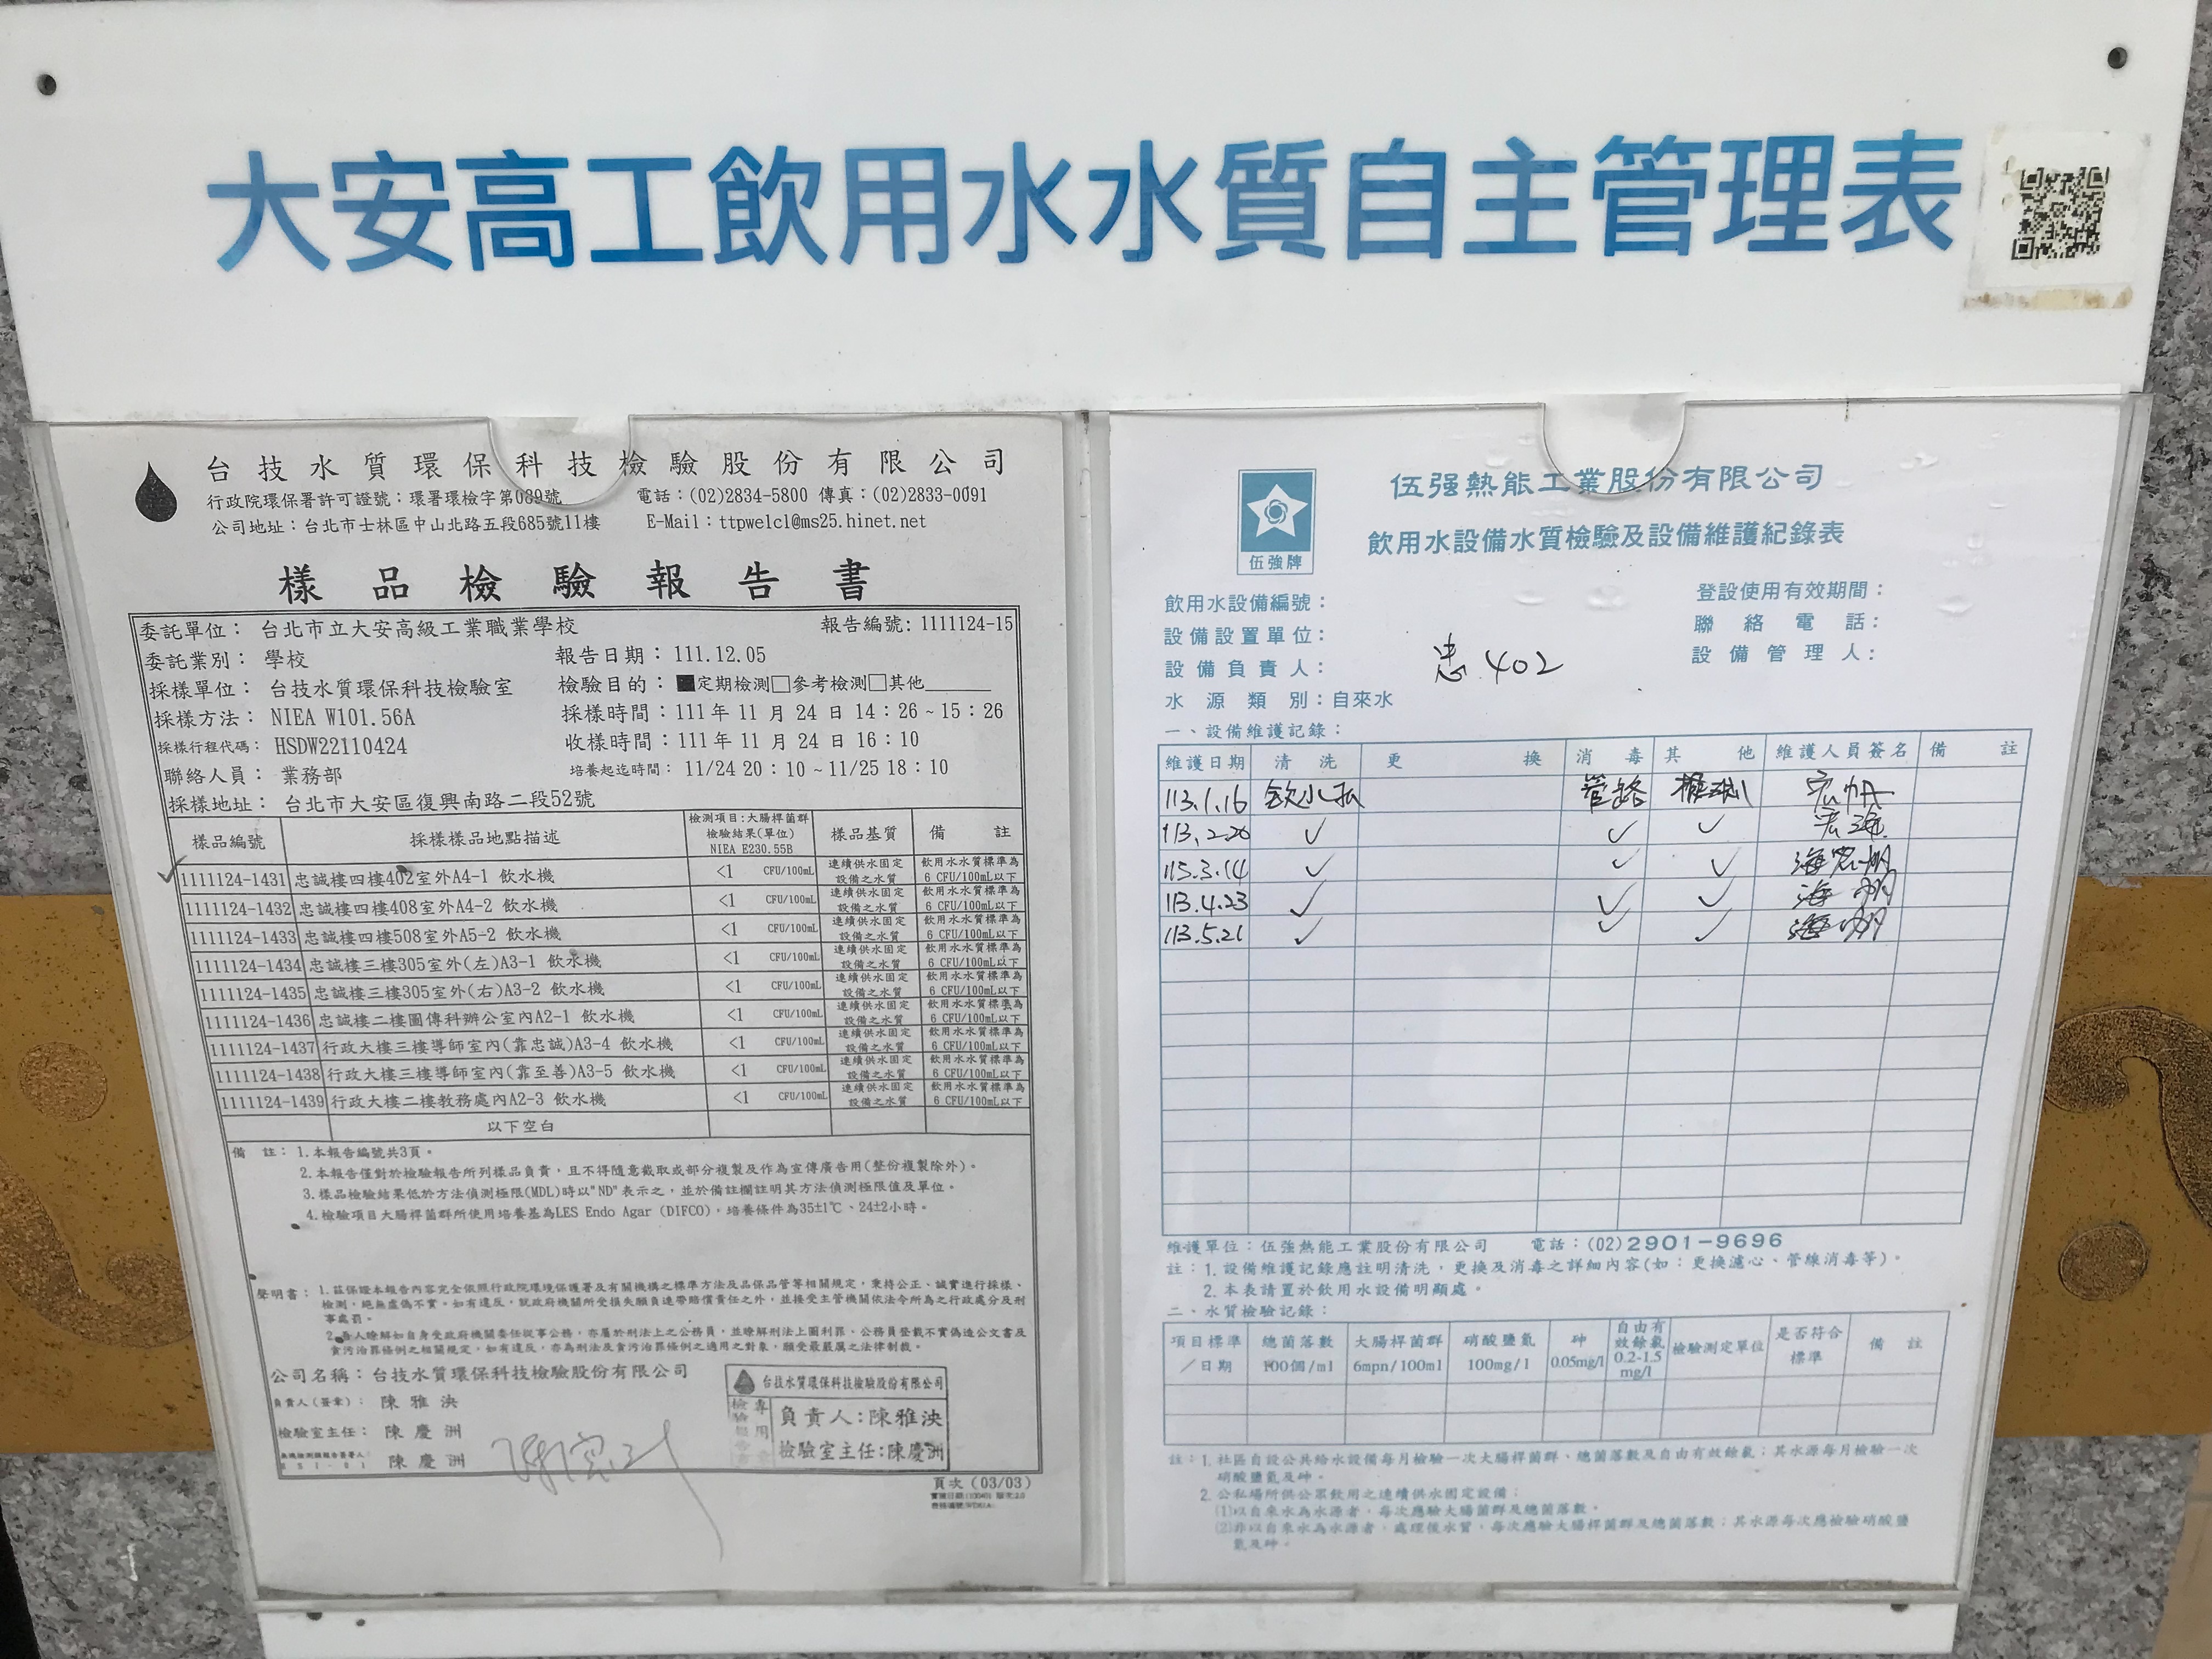 大安高工飲用水水質自主管理表
台技水質環保科技檢驗股份有限公司
行政院環保署許可證號：環署環檢字第039號 電話：(02)2834-5800 傳真：(02)2833-0091
公司地址：台北市士林區中山北路五段685號11樓 E-Mail：ttpwelcl@ms25.hinet.net
樣品檢驗報告書
委託單位： 台北市立大安高級工業職業學校 報告編號：1111124-15
委託業別： 學校 報告日期：111.12.05
採樣單位： 台技水質環保科技檢驗室 檢驗目的：■定期檢測□參考檢測□其他
採樣方法： NIEA W101.56A 採樣時間：111年 11 月 24 日 14：26～15：26
採樣行程代碼： HSDW22110424 收樣時間：111年 11 月 24 日 16：10
聯絡人員： 業務部 培養起迄時間： 11/24 20：10～11/25 18：10
採樣地址： 台北市大安區復興南路二段52號
樣品編號 採樣樣品地點描述 檢測項目:大腸桿菌群 檢驗結果(單位) NIEA E230.55B 樣品基質 備註
1111124-1431 忠誠樓四樓402室外A4-1 飲水機 <1 CFU/100mL 連續供水固定設備之水質 飲用水水質標準為6 CFU/100mL以下
1111124-1432 忠誠樓四樓408室外A4-2 飲水機 <1 CFU/100mL 連續供水固定設備之水質 飲用水水質標準為6 CFU/100mL以下
1111124-1433 忠誠樓四樓508室外A5-2 飲水機 <1 CFU/100mL 連續供水固定設備之水質 飲用水水質標準為6 CFU/100mL以下
1111124-1434 忠誠樓三樓305室外(左)A3-1 飲水機 <1 CFU/100mL 連續供水固定設備之水質 飲用水水質標準為6 CFU/100mL以下
1111124-1435 忠誠樓三樓305室外(右)A3-2 飲水機 <1 CFU/100mL 連續供水固定設備之水質 飲用水水質標準為6 CFU/100mL以下
1111124-1436 忠誠樓二樓圖傳科辦公室內A2-1 飲水機 <1 CFU/100mL 連續供水固定設備之水質 飲用水水質標準為6 CFU/100mL以下
1111124-1437 行政大樓三樓導師室內(靠忠誠)A3-4 飲水機 <1 CFU/100mL 連續供水固定設備之水質 飲用水水質標準為6 CFU/100mL以下
1111124-1438 行政大樓三樓導師室內(靠至善)A3-5 飲水機 <1 CFU/100mL 連續供水固定設備之水質 飲用水水質標準為6 CFU/100mL以下
1111124-1439 行政大樓二樓教務處內A2-3 飲水機 <1 CFU/100mL 連續供水固定設備之水質 飲用水水質標準為6 CFU/100mL以下
以下空白
備 註： 1.本報告編號共3頁。
2.本報告僅對於檢驗報告所列樣品負責，且不得隨意截取或部分複製及作為宣傳廣告用(整份複製除外)。
3.樣品檢驗結果低於方法偵測極限(MDL)時以"ND"表示之，並於備註欄註明其方法偵測極限值及單位。
4.檢驗項目大腸桿菌群所使用培養基為LES Endo Agar (DIFCO)，培養條件為35±1℃、24±2小時。
聲明書： 1.茲保證本報告內容完全依照行政院環境保護署及有關機構之標準方法及品保品管等相關規定，秉持公正、誠實進行採樣、
檢測，絕無虛偽不實。如有違反，就政府機關所受損失願負連帶賠償責任之外，並接受主管機關依法令所為之行政處分及刑
事處罰。
2.吾人瞭解如自身受政府機關委任從事公務，亦屬於刑法上之公務員，並瞭解刑法上圖利罪、公務員登載不實偽造公文書及
貪污治罪條例之相關規定，如有違反，亦為刑法及貪污治罪條例之適用之對象，願受最嚴厲之法律制裁。
公司名稱：台技水質環保科技檢驗股份有限公司
負責人(簽章)： 陳雅泱
檢驗室主任： 陳慶洲
陳慶洲
台技水質環保科技檢驗股份有限公司
檢驗報告專用章
負責人:陳雅泱
檢驗室主任:陳慶洲
頁次 (03/03)
伍強牌
伍强熱能工業股份有限公司
飲用水設備水質檢驗及設備維護紀錄表
飲用水設備編號： 登設使用有效期間：
設備設置單位： 聯絡電話：
設備負責人： 忠.402 設備管理人：
水源類別：自來水
一、設備維護記錄：
維護日期 清洗 更換 消毒 其他 維護人員簽名 備註
113.1.16 飲水機 管路
113.2.20 ✓ ✓ ✓
113.3.14 ✓ ✓ ✓
113.4.23 ✓ ✓ ✓
113.5.21 ✓ ✓ ✓
維護單位：伍強熱能工業股份有限公司 電話：(02)2901-9696
註：1.設備維護記錄應註明清洗，更換及消毒之詳細內容(如：更換濾心、管線消毒等)。
2.本表請置於飲用水設備明顯處。
二、水質檢驗記錄：
項目標準／日期 總菌落數 100個/ml 大腸桿菌群 6mpn/100ml 硝酸鹽氮 100mg/l 砷 0.05mg/l 自由有效餘氯 0.2-1.5 mg/l 檢驗測定單位 是否符合標準 備註
註：1.社區自設公共給水設備每月檢驗一次大腸桿菌群、總菌落數及自由有效餘氯；其水源每月檢驗一次
硝酸鹽氮及砷。
2.公私場所供公眾飲用之連續供水固定設備：
(1)以自來水為水源者，每次應驗大腸桿菌群及總菌落數。
(2)非以自來水為水源者，處理後水質，每次應驗大腸桿菌群及總菌落數；其水源每次應檢驗硝酸鹽
氮及砷。